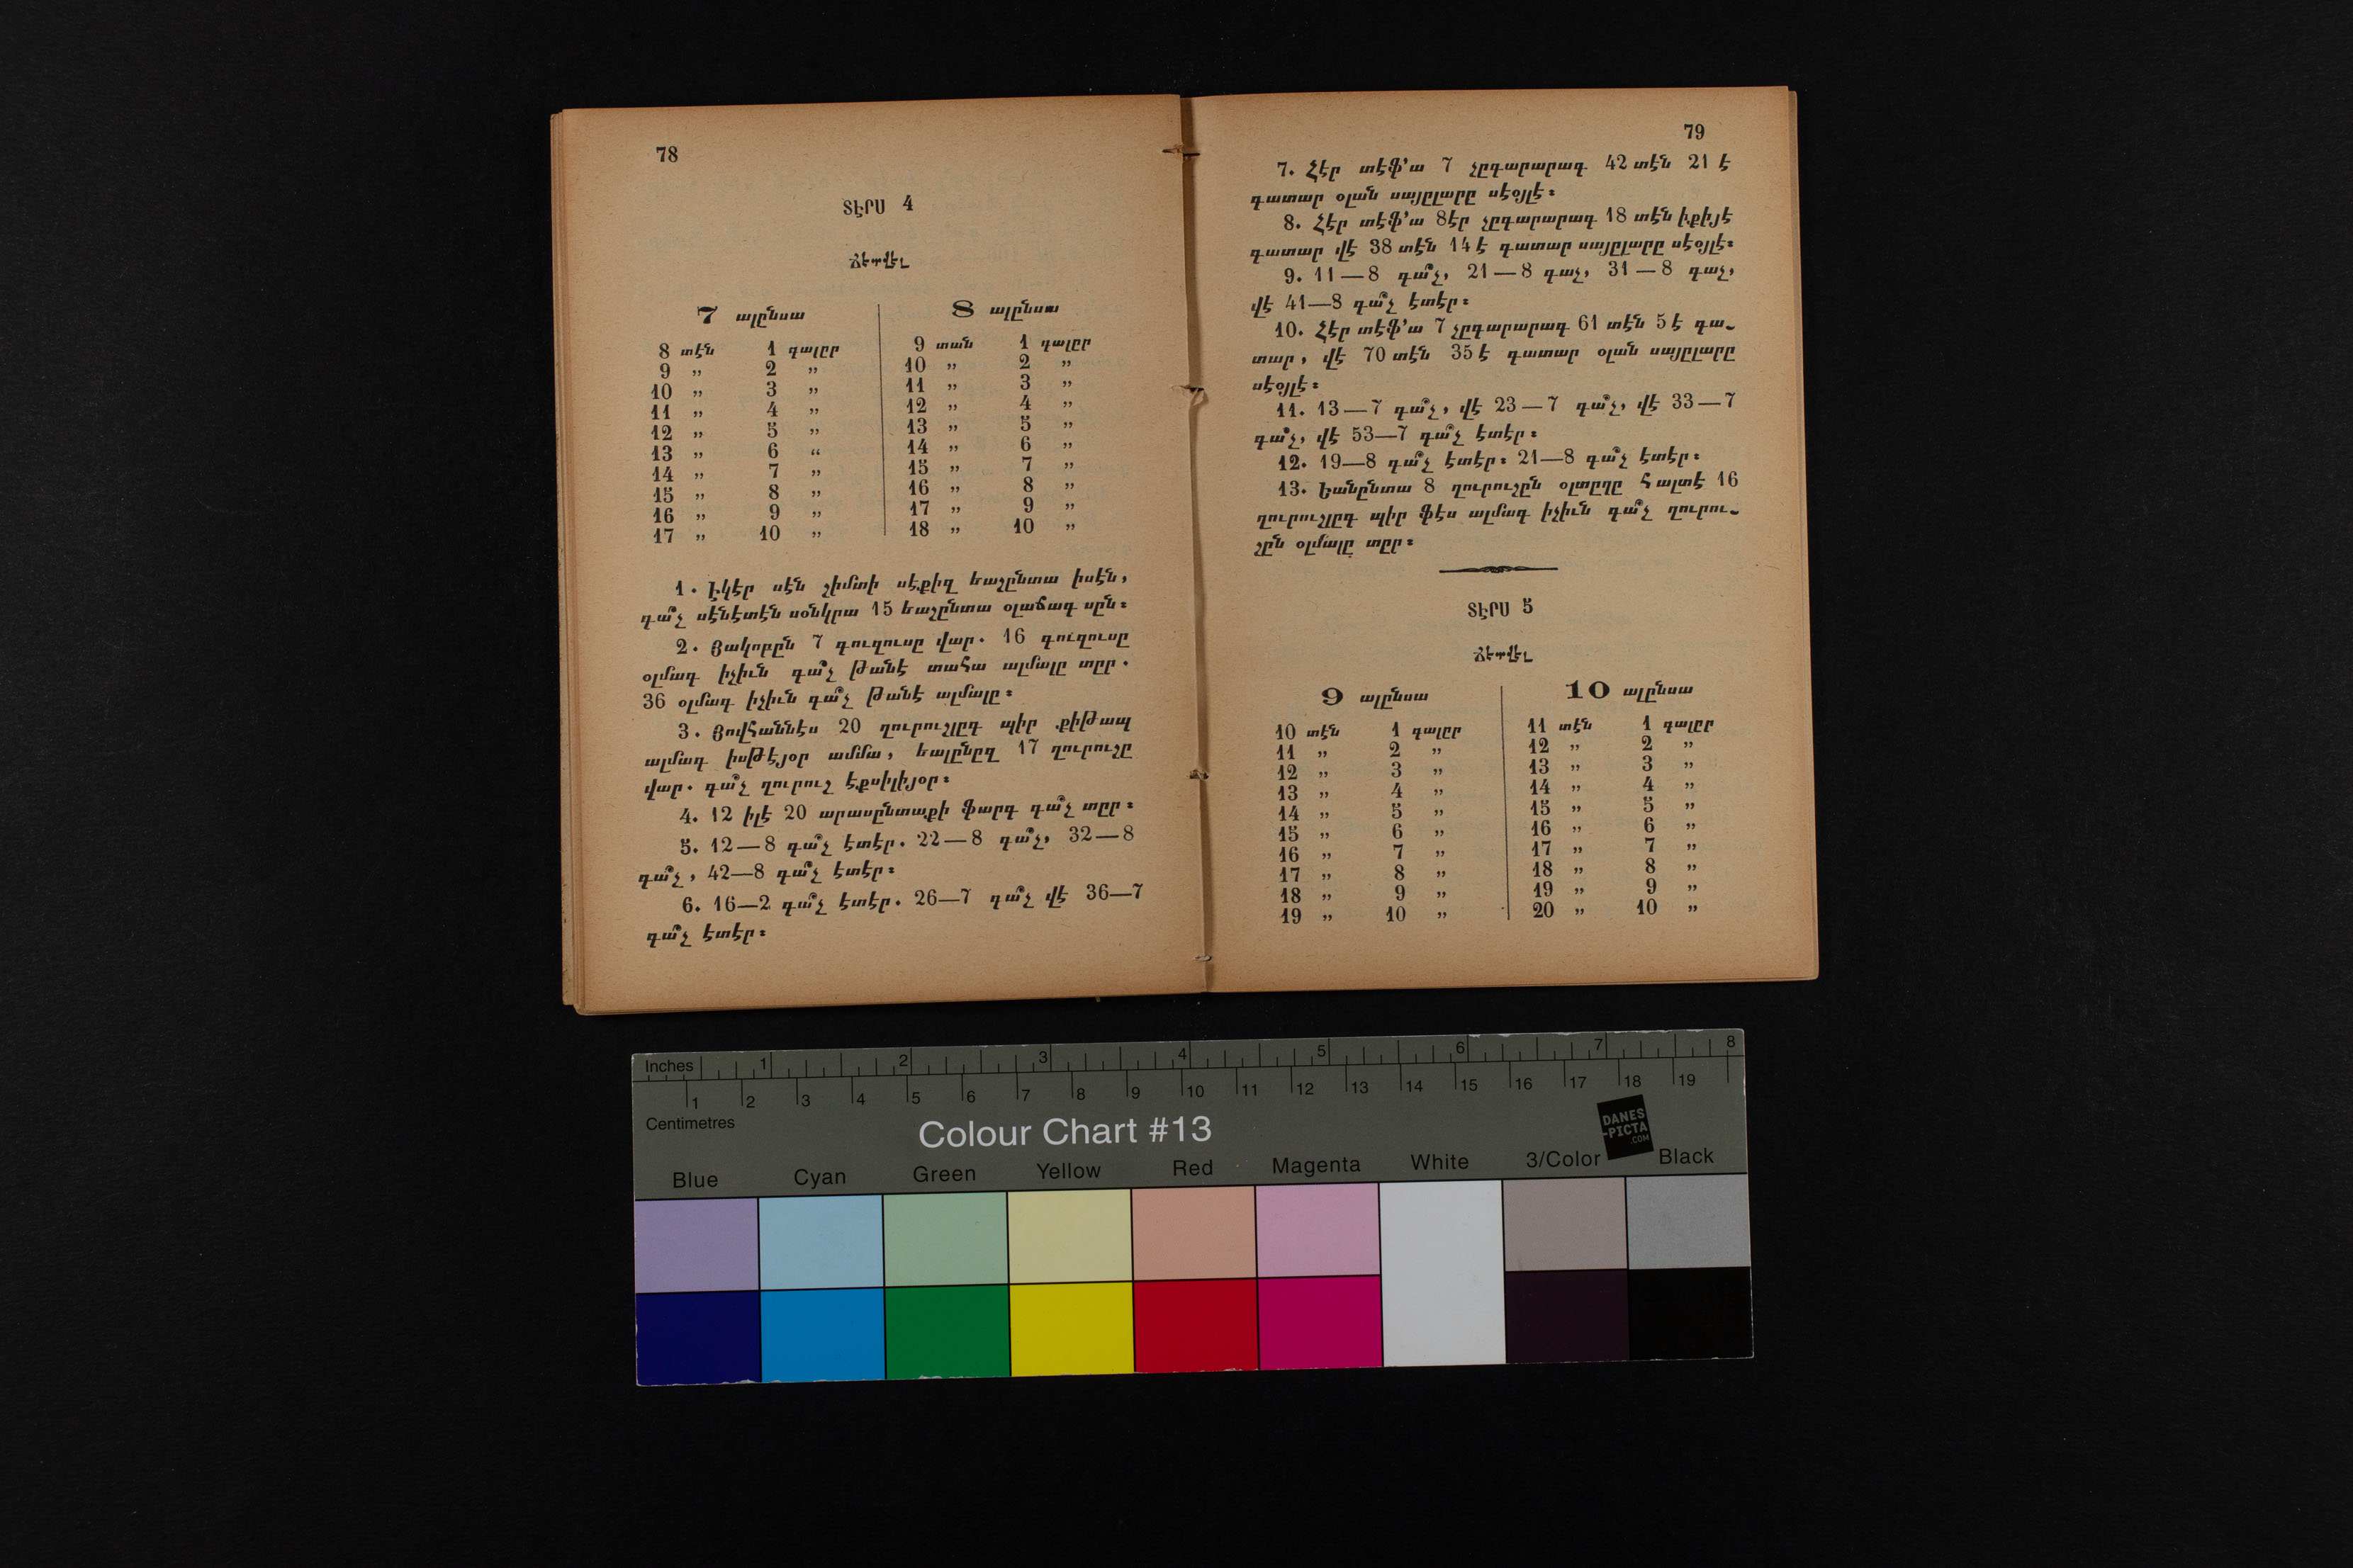 78
ՏԷՐՍ 4
Ճէտվէլ
7 ալընսա
8 տէն 1 գալըր
9 „ 2 „
10 „ 3 „
11 „ 4 „
12 „ 5 „
13 „ 6 “
14 „ 7 „
15 „ 8 „
16 „ 9 „
17 „ 10 „
8 ալընսա
9 տան 1 գալըր
10 „ 2 „
11 „ 3 „
12 „ 4 „
13 „ 5 „
14 „ 6 „
15 „ 7 „
16 „ 8 „
17 „ 9 „
18 „ 10 „
1. Էկէր սէն շիմտի սէքիզ եաշընտա իսէն,
գա՞չ սէնէտէն սօնկրա 15 եաշընտա օլաճագ սըն։
2. Յակոբըն 7 գուզուսը վար. 16 գուզուսը
օլմագ իչիւն գա՞չ թանէ տահա ալմալը տըր.
36 օլմագ իչիւն գա՞չ թանէ ալմալը։
3. Յովհաննէս 20 ղուրուշլըգ պիր քիթապ
ալմագ իսթէյօր ամմա, եալընըզ 17 ղուրուշը
վար. գա՞չ ղուրուշ էքսիլիյօր։
4. 12 իլէ 20 արասընտաքի ֆարգ գա՞չ տըր։
5. 12—8 գա՞չ էտէր. 22—8 գա՞չ, 32—8
գա՞չ, 42—8 գա՞չ էտէր։
6. 16—2 գա՞չ էտէր. 26—7 գա՞չ վէ 36—7
գա՞չ էտէր։
79
7. Հէր տէֆ՚ա 7 չըգարարագ 42 տէն 21 է
գատար օլան սայըլարը սէօյլէ։
8. Հէր տէֆ՚ա 8էր չըգարարագ 18 տէն իքիյէ
գատար վէ 38 տէն 14 է գատար սայըլարը սէօյլէ։
9. 11—8 գա՞չ, 21—8 գաչ, 31—8 գաչ,
վէ 41—8 գա՞չ էտէր։
10. Հէր տէֆ՚ա 7 չըգարարագ 61 տէն 5 է գա֊
տար, վէ 70 տէն 35 է գատար օլան սայըլարը
սէօյլէ։
11. 13—7 գա՞չ, վէ 23—7 գա՞չ, վէ 33—7
գա՞չ, վէ 53—7 գա՞չ էտէր։
12. 19—8 գա՞չ էտէր։ 21—8 գա՞չ էտէր։
13. Եանընտա 8 ղուրուշըն օլտըղը հալտէ 16
ղուրուշլըգ պիր ֆէս ալմագ իչիւն գա՞չ ղուրու֊
շըն օլմալը տըր։
ՏԷՐՍ 5
Ճէտվէլ
9 ալընսա
10 տէն 1 գալըր
11 „ 2 „
12 „ 3 „
13 „ 4 „
14 „ 5 „
15 „ 6 „
16 „ 7 „
17 „ 8 „
18 „ 9 „
19 „ 10 „
10 ալընսա
11 տէն 1 գալըր
12 „ 2 „
13 „ 3 „
14 „ 4 „
15 „ 5 „
16 „ 6 „
17 „ 7 „
18 „ 8 „
19 „ 9 „
20 „ 10 „
Inches 1 2 3 4 5 6 7 8
1 2 3 4 5 6 7 8 9 10 11 12 13 14 15 16 17 18 19
Centimetres
Colour Chart #13
DANES
-PICTA
.COM
Blue Cyan Green Yellow Red Magenta White 3/Color Black